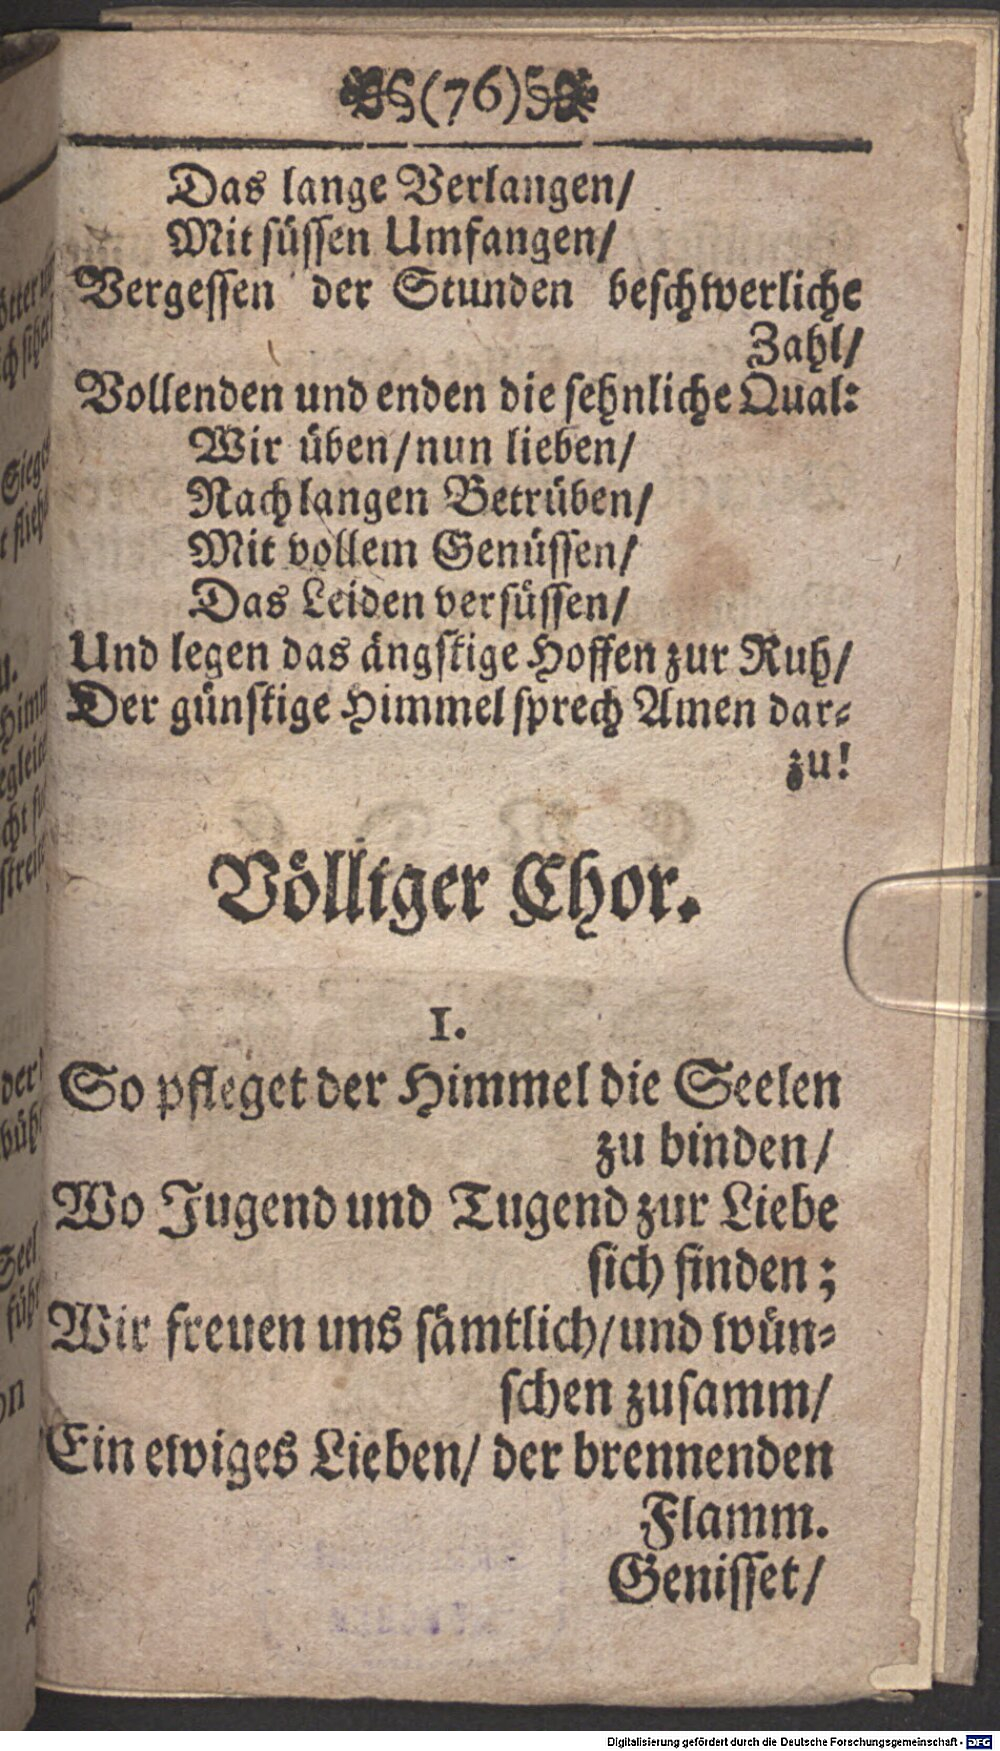 (76)
Das lange Verlangen/
Mit süssen Umfangen/
Vergessen der Stunden beschwerliche
Zahl/
Vollenden und enden die sehnliche Qual:
Wir üben/nun lieben/
Nach langen Betrüben/
Mit vollem Genüssen/
Das Leiden versüssen/
Und legen das ängstige Hoffen zur Ruh/
Der günstige Himmel sprech Amen dar-
zu!
Völliger Chor.
1.
So pfleget der Himmel die Seelen
zu binden/
Wo Jugend und Tugend zur Liebe
sich finden;
Wir freuen uns sämtlich/und wün-
schen zusamm/
Ein ewiges Lieben/ der brennenden
Flamm.
Genisset/
Digitalisierung gefördert durch die Deutsche Forschungsgemeinschaft - DFG